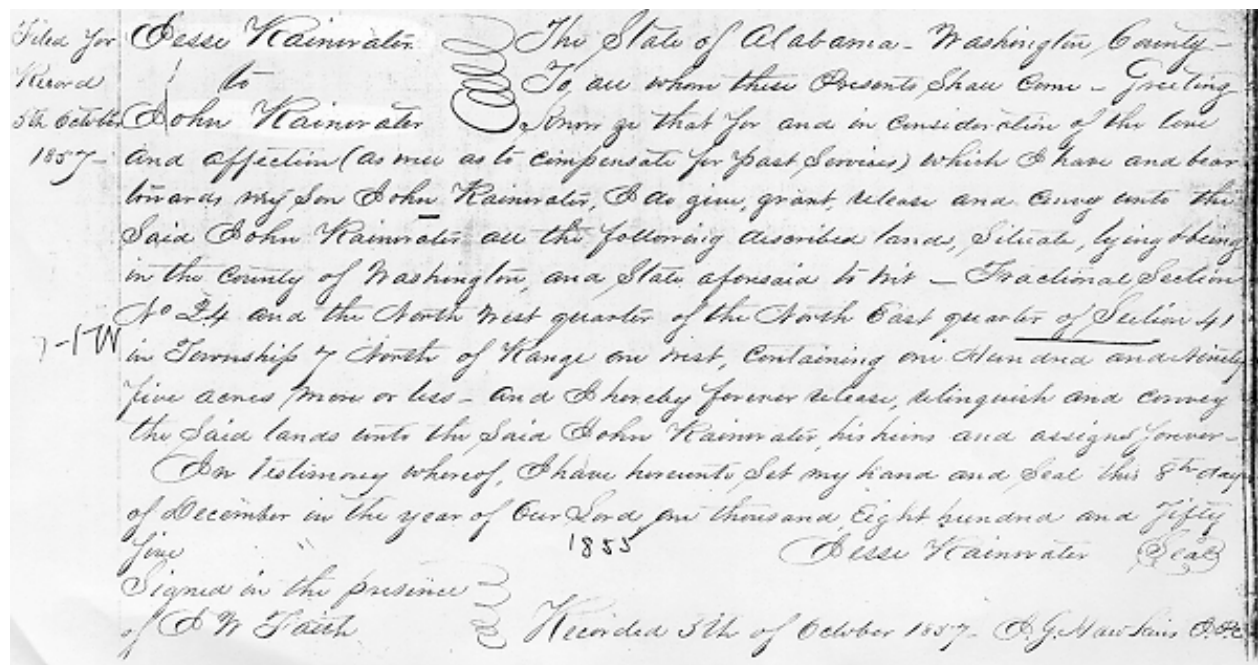 Filed for Jesse Rainwater The State of Alabama - Washington County -
Record to To all whom these Presents Shall Come - Greeting
5th October John Rainwater Know ye that for and in Consideration of the love
1857 - and affection (as well as to compensate for past Services) which I have and bear
towards my Son John Rainwater, I do give, grant, release and convey unto the
Said John Rainwater all the following described land, Situate, lying & being
in the County of Washington, and State aforesaid to wit - Fractional Section
No 24 and the North West quarter of the North East quarter of Section 41
7-1W in Township 7 North of Range one West, Containing one Hundred and Ninety
five acres more or less - and I hereby forever release, relinquish and convey
the Said lands unto the Said John Rainwater, his heirs and assigns forever -
In Testimony whereof, I have hereunto Set my hand and Seal this 8th day
of December in the year of Our Lord one thousand Eight hundred and fifty
five 1855 Jesse Rainwater Seal
Signed in the presence
of W Faith Recorded 5th of October 1857 -